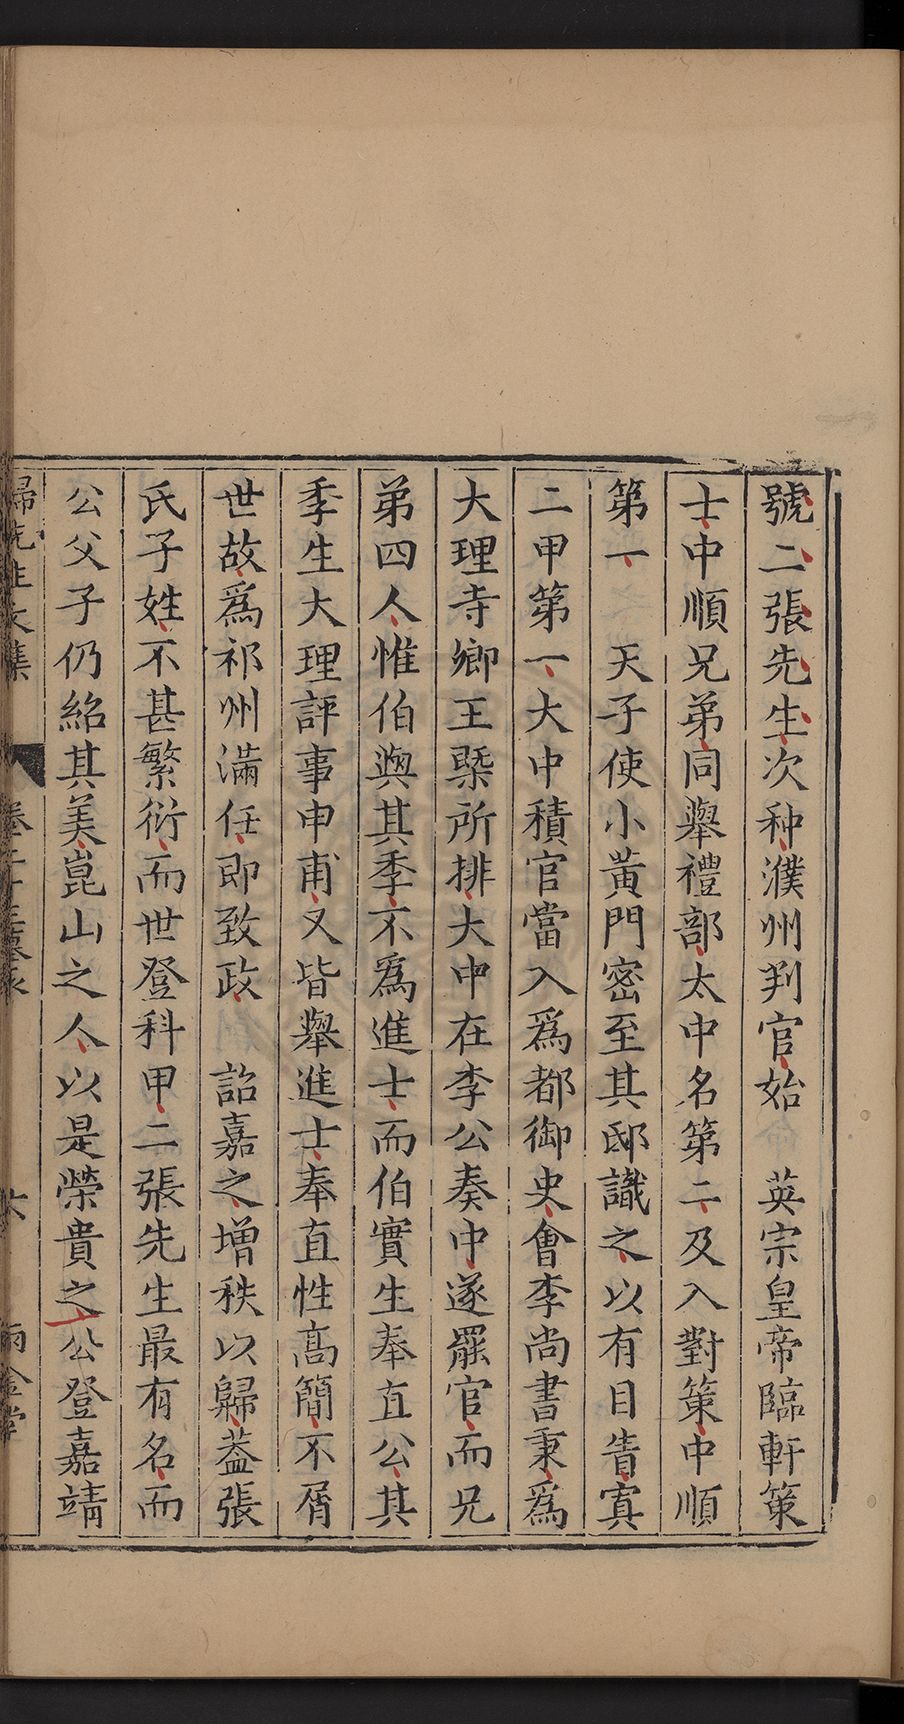 號二張先生次种濮州判官始　英宗皇帝臨軒策
士中順兄弟同舉禮部太中名第二及入對策中順
第一　天子使小黃門密至其邸識之以有目眚寘
二甲第一大中積官當入爲都御史會李尚書秉爲
大理寺卿王槩所排大中在李公奏中遂罷官而兄
弟四人惟伯與其季不爲進士而伯實生奉直公其
季生大理評事申甫又皆舉進士奉直性高簡不屑
世故爲祁州滿任即致政　詔嘉之增秩以歸蓋張
氏子姓不甚繁衍而世登科甲二張先生最有名而
公父子仍紹其美崑山之人以是榮貴之公登嘉靖
歸先生文集　卷二十　六